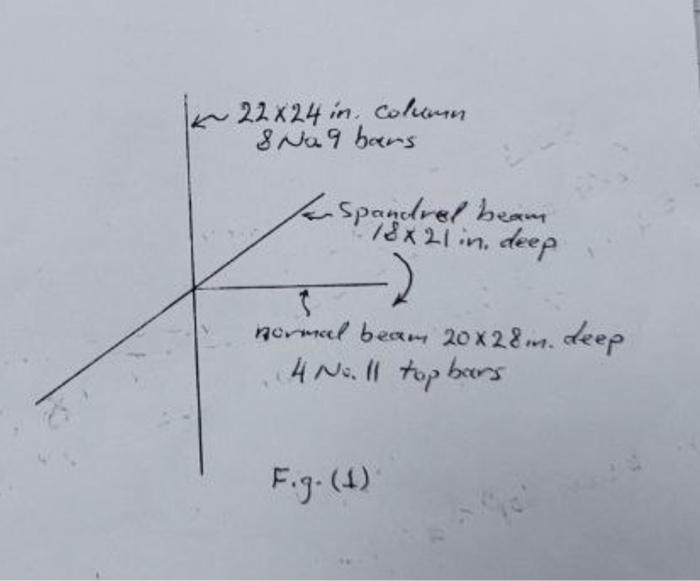 22X24 in. column
8 No. 9 bars
Spandrel beam
18X21 in. deep
normal beam 20X28 in. deep
4 No. 11 top bars
Fig. (1)